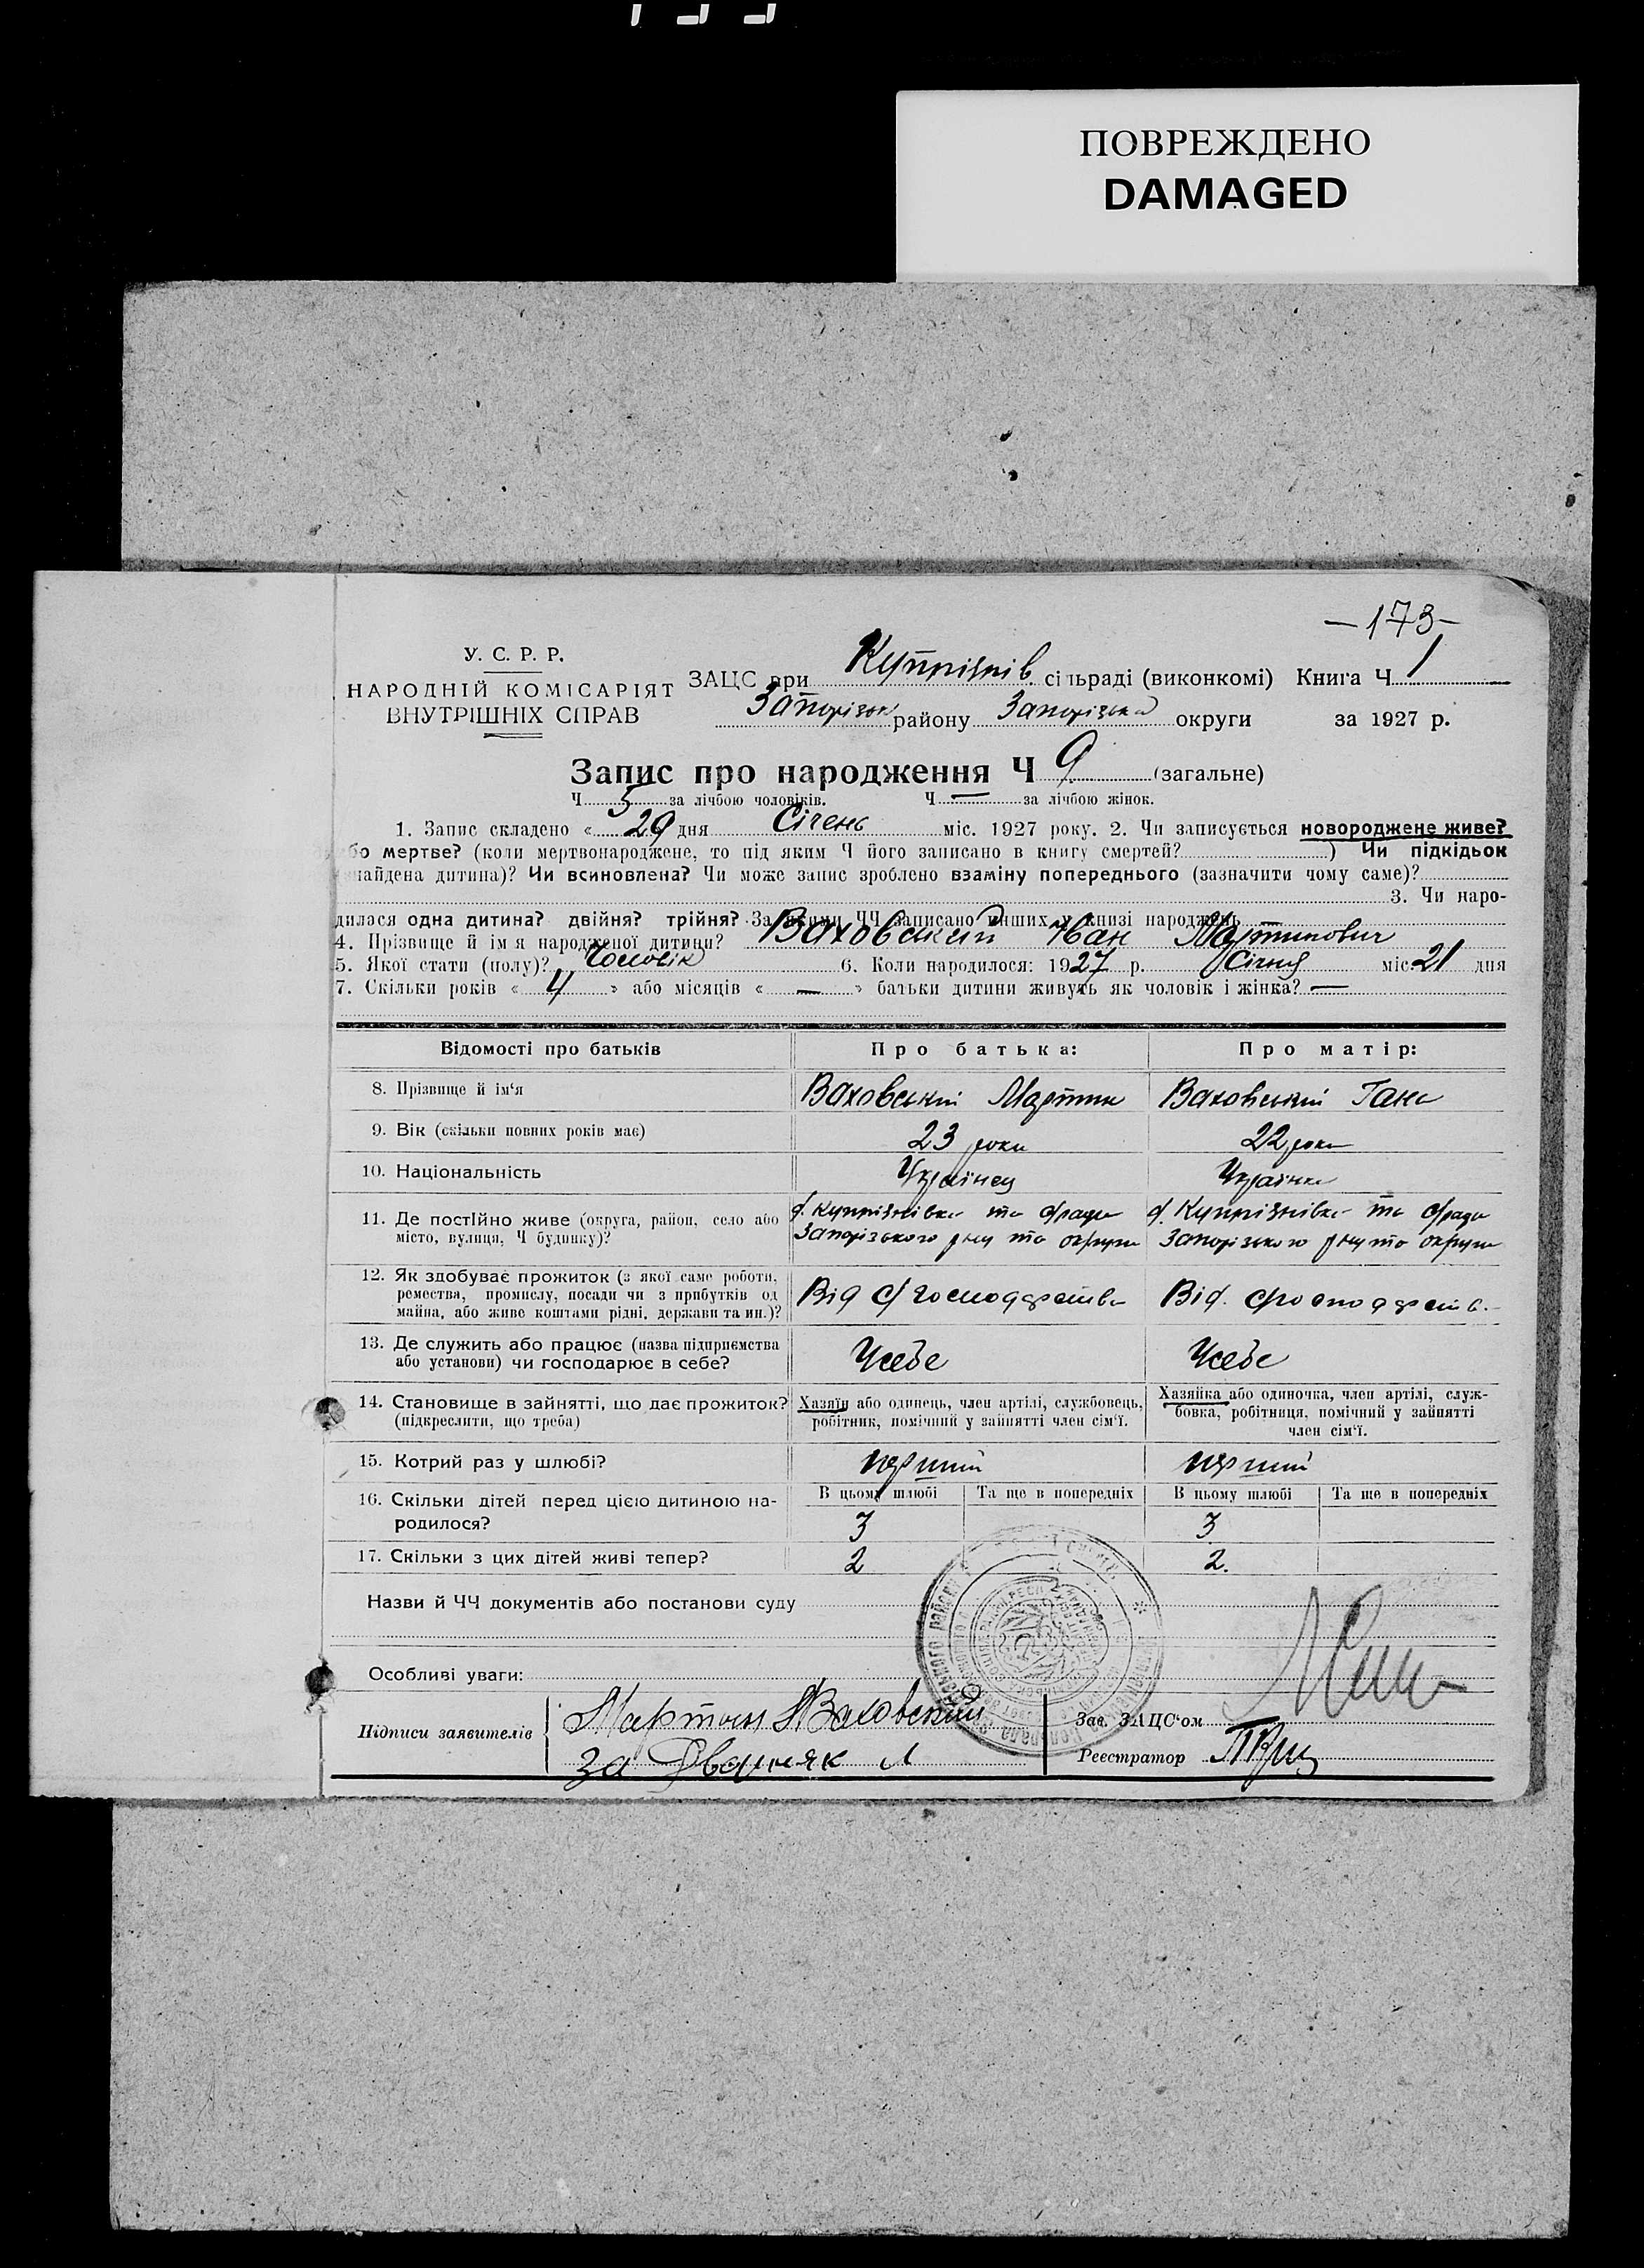 ПОВРЕЖДЕНО
DAMAGED
—173—
У. С. Р. Р.
НАРОДНІЙ КОМІСАРІЯТ
ВНУТРІШНІХ СПРАВ
ЗАЦС при Купріянів. сільраді (виконкомі) Книга Ч 1
Запорізьк району Запорізька округи за 1927 р.
Запис про народження Ч 9 (загальне)
Ч 5 за лічбою чоловіків. Ч — за лічбою жінок.
1. Запис складено « 29 дня Січень міс. 1927 року. 2. Чи записується новороджене живе?
бо мертве? (коли мертвонароджене, то під яким Ч його записано в книгу смертей? ) Чи підкідьок
найдена дитина)? Чи всиновлена? Чи може запис зроблено взаміну попереднього (зазначити чому саме)?
3. Чи наро-
дилася одна дитина? двійня? трійня? За якими ЧЧ записано инших у книзі народжень
4. Прізвище й ім я народженої дитини? Ваховський Іван Мартинович
5. Якої стати (полу)? Чоловік 6. Коли народилося: 1927 р. Січня міс. 21 дня
7. Скільки років « 4 » або місяців « — » батьки дитини живуть як чоловік і жінка? —
Відомості про батьків Про батька: Про матір:
8. Прізвище й ім‘я Ваховський Мартин Ваховський Гана
9. Вік (скільки повних років має) 23 роки 22 роки
10. Національність Українец Українка
11. Де постійно живе (округа, район, село або місто, вулиця, Ч будинку)?
с. Купріянівка та с/ради с. Купріянівка та с/ради
Запорізького р-ну та округи Запорізького р-ну та округи
12. Як здобуває прожиток (з якої саме роботи,
ремества, промислу, посади чи з прибутків од
майна, або живе коштами рідні, держави та ин.)?
Від с/господарства Від с/господарств.
13. Де служить або працює (назва підприємства
або установи) чи господарює в себе? Усебе Усебе
14. Становище в зайнятті, що дає прожиток?
(підкреслити, що треба)
Хазяїн або одинець, член артілі, службовець,
робітник, помічний у зайнятті член сім‘ї.
Хазяйка або одиночка, член артілі, служ-
бовка, робітниця, помічний у зайнятті
член сім‘ї.
15. Котрий раз у шлюбі? перший перший
16. Скільки дітей перед цією дитиною на-
родилося?
В цьому шлюбі Та ще в попередніх В цьому шлюбі Та ще в попередніх
3 3
17. Скільки з цих дітей живі тепер? 2 2.
Назви й ЧЧ документів або постанови суду
Особливі уваги:
Підписи заявителів Мартин Ваховский
за
Зав. ЗАЦС‘ом
Реестратор